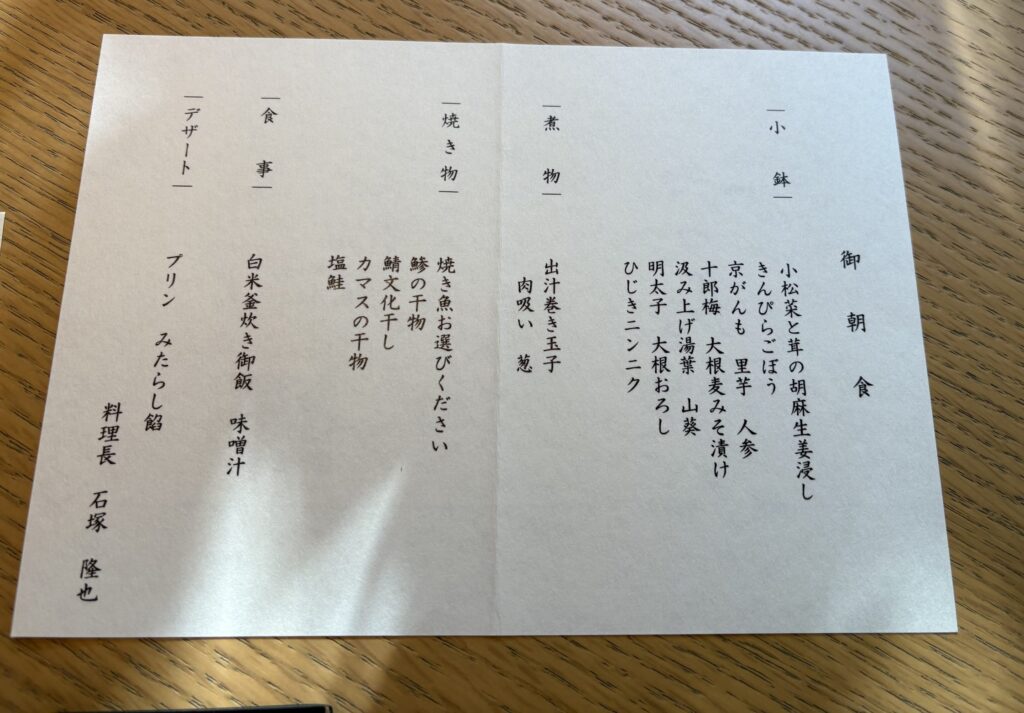 御朝食
小鉢
小松菜と茸の胡麻生姜浸し
きんぴらごぼう
京がんも　里芋　人参
十郎梅　大根麦みそ漬け
汲み上げ湯葉　山葵
明太子　大根おろし
ひじきニンニク
煮物
出汁巻き玉子
肉吸い　葱
焼き物
焼き魚お選びください
鯵の干物
鯖文化干し
カマスの干物
塩鮭
食事
白米釜炊き御飯　味噌汁
デザート
プリン　みたらし餡
料理長　石塚　隆也